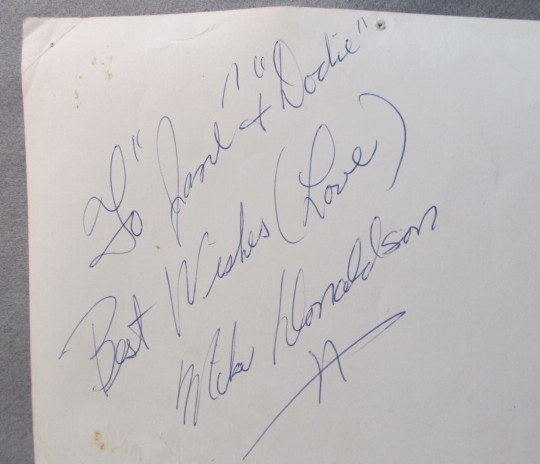 To "Jané" + "Dodie"
Best Wishes (Love)
Mike Donaldson